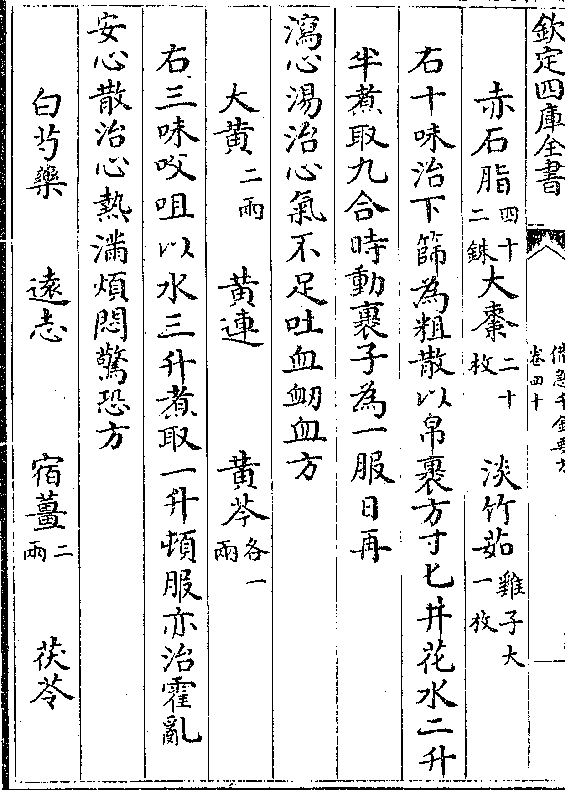 欽定四庫全書
備急千金要方
卷四十
赤石脂四十二銖 大棗二十枚 淡竹茹雞子大一枚
右十味治下篩為粗散以帛裹方寸匕井花水二升
半煮取九合時動裹子為一服日再
瀉心湯治心氣不足吐血衂血方
大黄二兩 黄連 黄芩各一兩
右三味㕮咀以水三升煮取一升頓服亦治霍亂
安心散治心熱滿煩悶驚恐方
白芍藥 遠志 宿薑二兩 茯苓